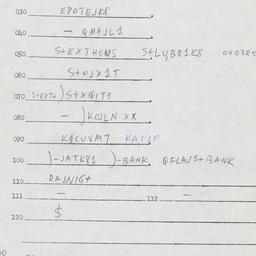 030 EPOTEJK8
040 — QMAJL1
050 S+EXTHOMS S+LYBR1K8 OVO3R5
060 S+OJX1T
070 S+EXT+ )S+XQIT1
080 — )KOJLN XX
090 KACUVM7 KAC1P
100 )-JATK81 )-BANK QFLAJS+BANK
110 RAJNIG+
111 — 112 —
120 $